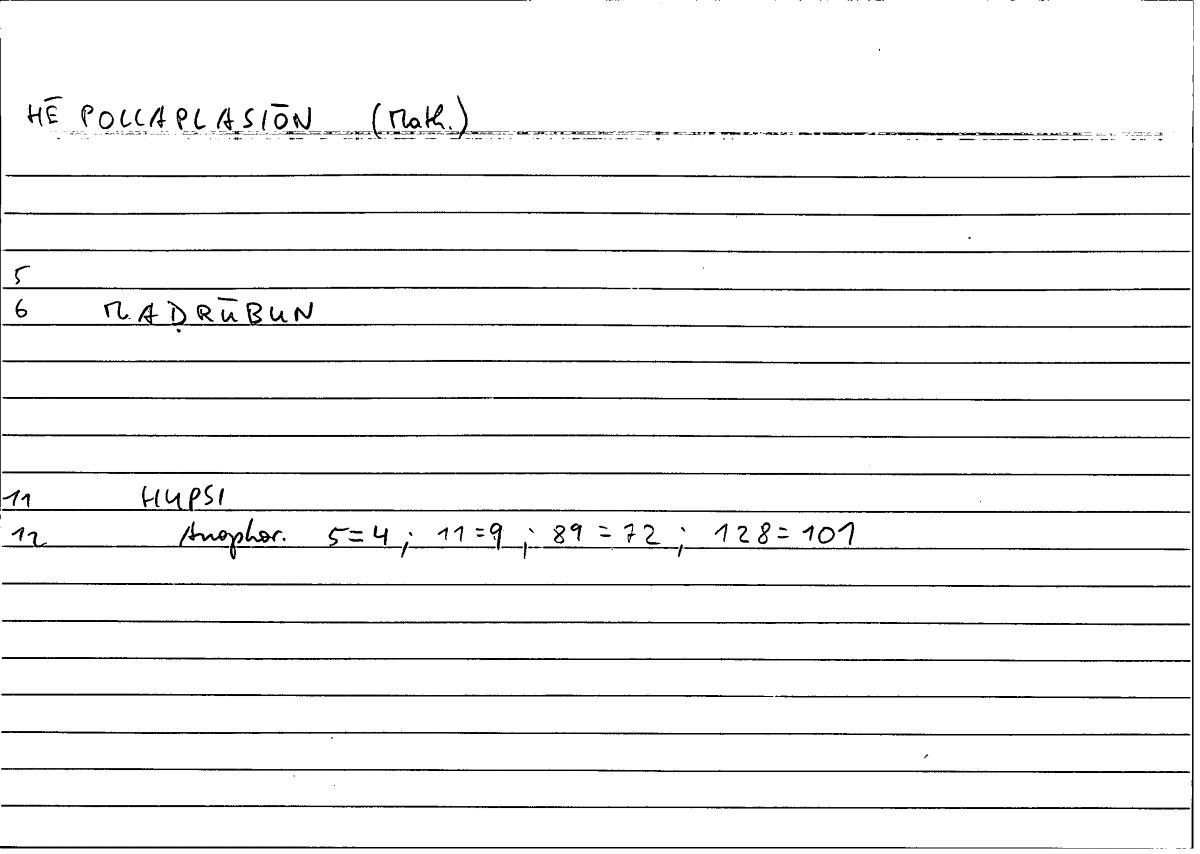 HĒ POLLAPLASIŌN (Math.)
5
6 MAḌRŪBUN
11 HUPSI
12 Anaphor. 5=4 ; 11=9 ; 89=72 ; 128=101